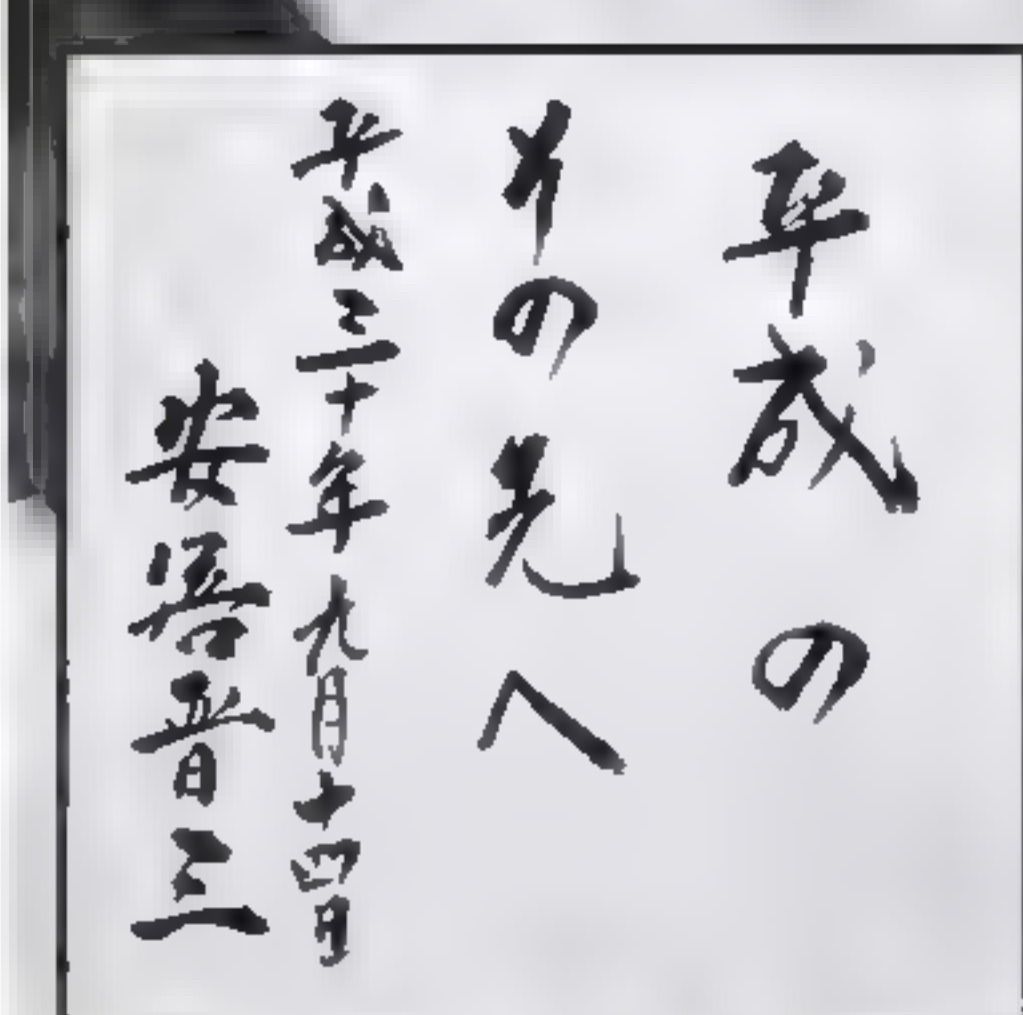 平成の
その先へ
平成三十年九月十四日
安倍晋三